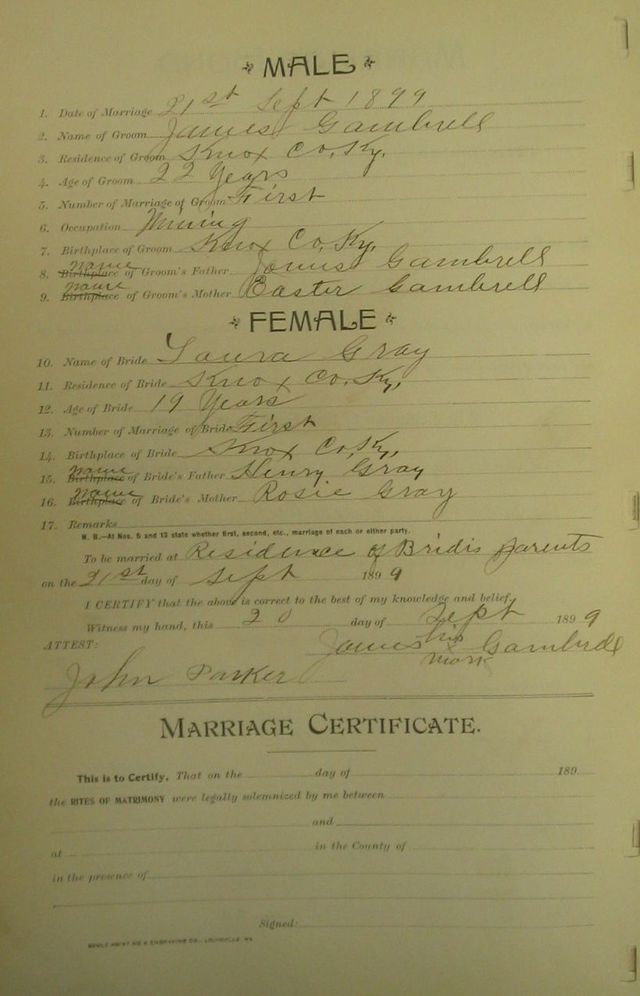 MALE
1. Date of Marriage 21st Sept 1899
2. Name of Groom James Gambrell
3. Residence of Groom Knox Co, Ky.
4. Age of Groom 22 Years
5. Number of Marriage of Groom First
6. Occupation Mining
7. Birthplace of Groom Knox Co, Ky,
8. Birthplace Name of Groom's Father James Gambrell
9. Birthplace Name of Groom's Mother Easter Gambrell
FEMALE
10. Name of Bride Laura Gray
11. Residence of Bride Knox Co, Ky,
12. Age of Bride 19 Years
13. Number of Marriage of Bride First
14. Birthplace of Bride Knox Co, Ky,
15. Birthplace Name of Bride's Father Henry Gray
16. Birthplace Name of Bride's Mother Rosie Gray
17. Remarks
N. B.—At Nos. 5 and 13 state whether first, second, etc., marriage of each or either party.
To be married at Residence of Bridis parents
on the 21st day of Sept 1899
I CERTIFY that the above is correct to the best of my knowledge and belief.
Witness my hand, this 20 day of Sept 1899
ATTEST: James his x mark Gambrell
John Parker
MARRIAGE CERTIFICATE.
This is to Certify, That on the day of 189
the RITES OF MATRIMONY were legally solemnized by me between
and
at in the County of
in the presence of
Signed: